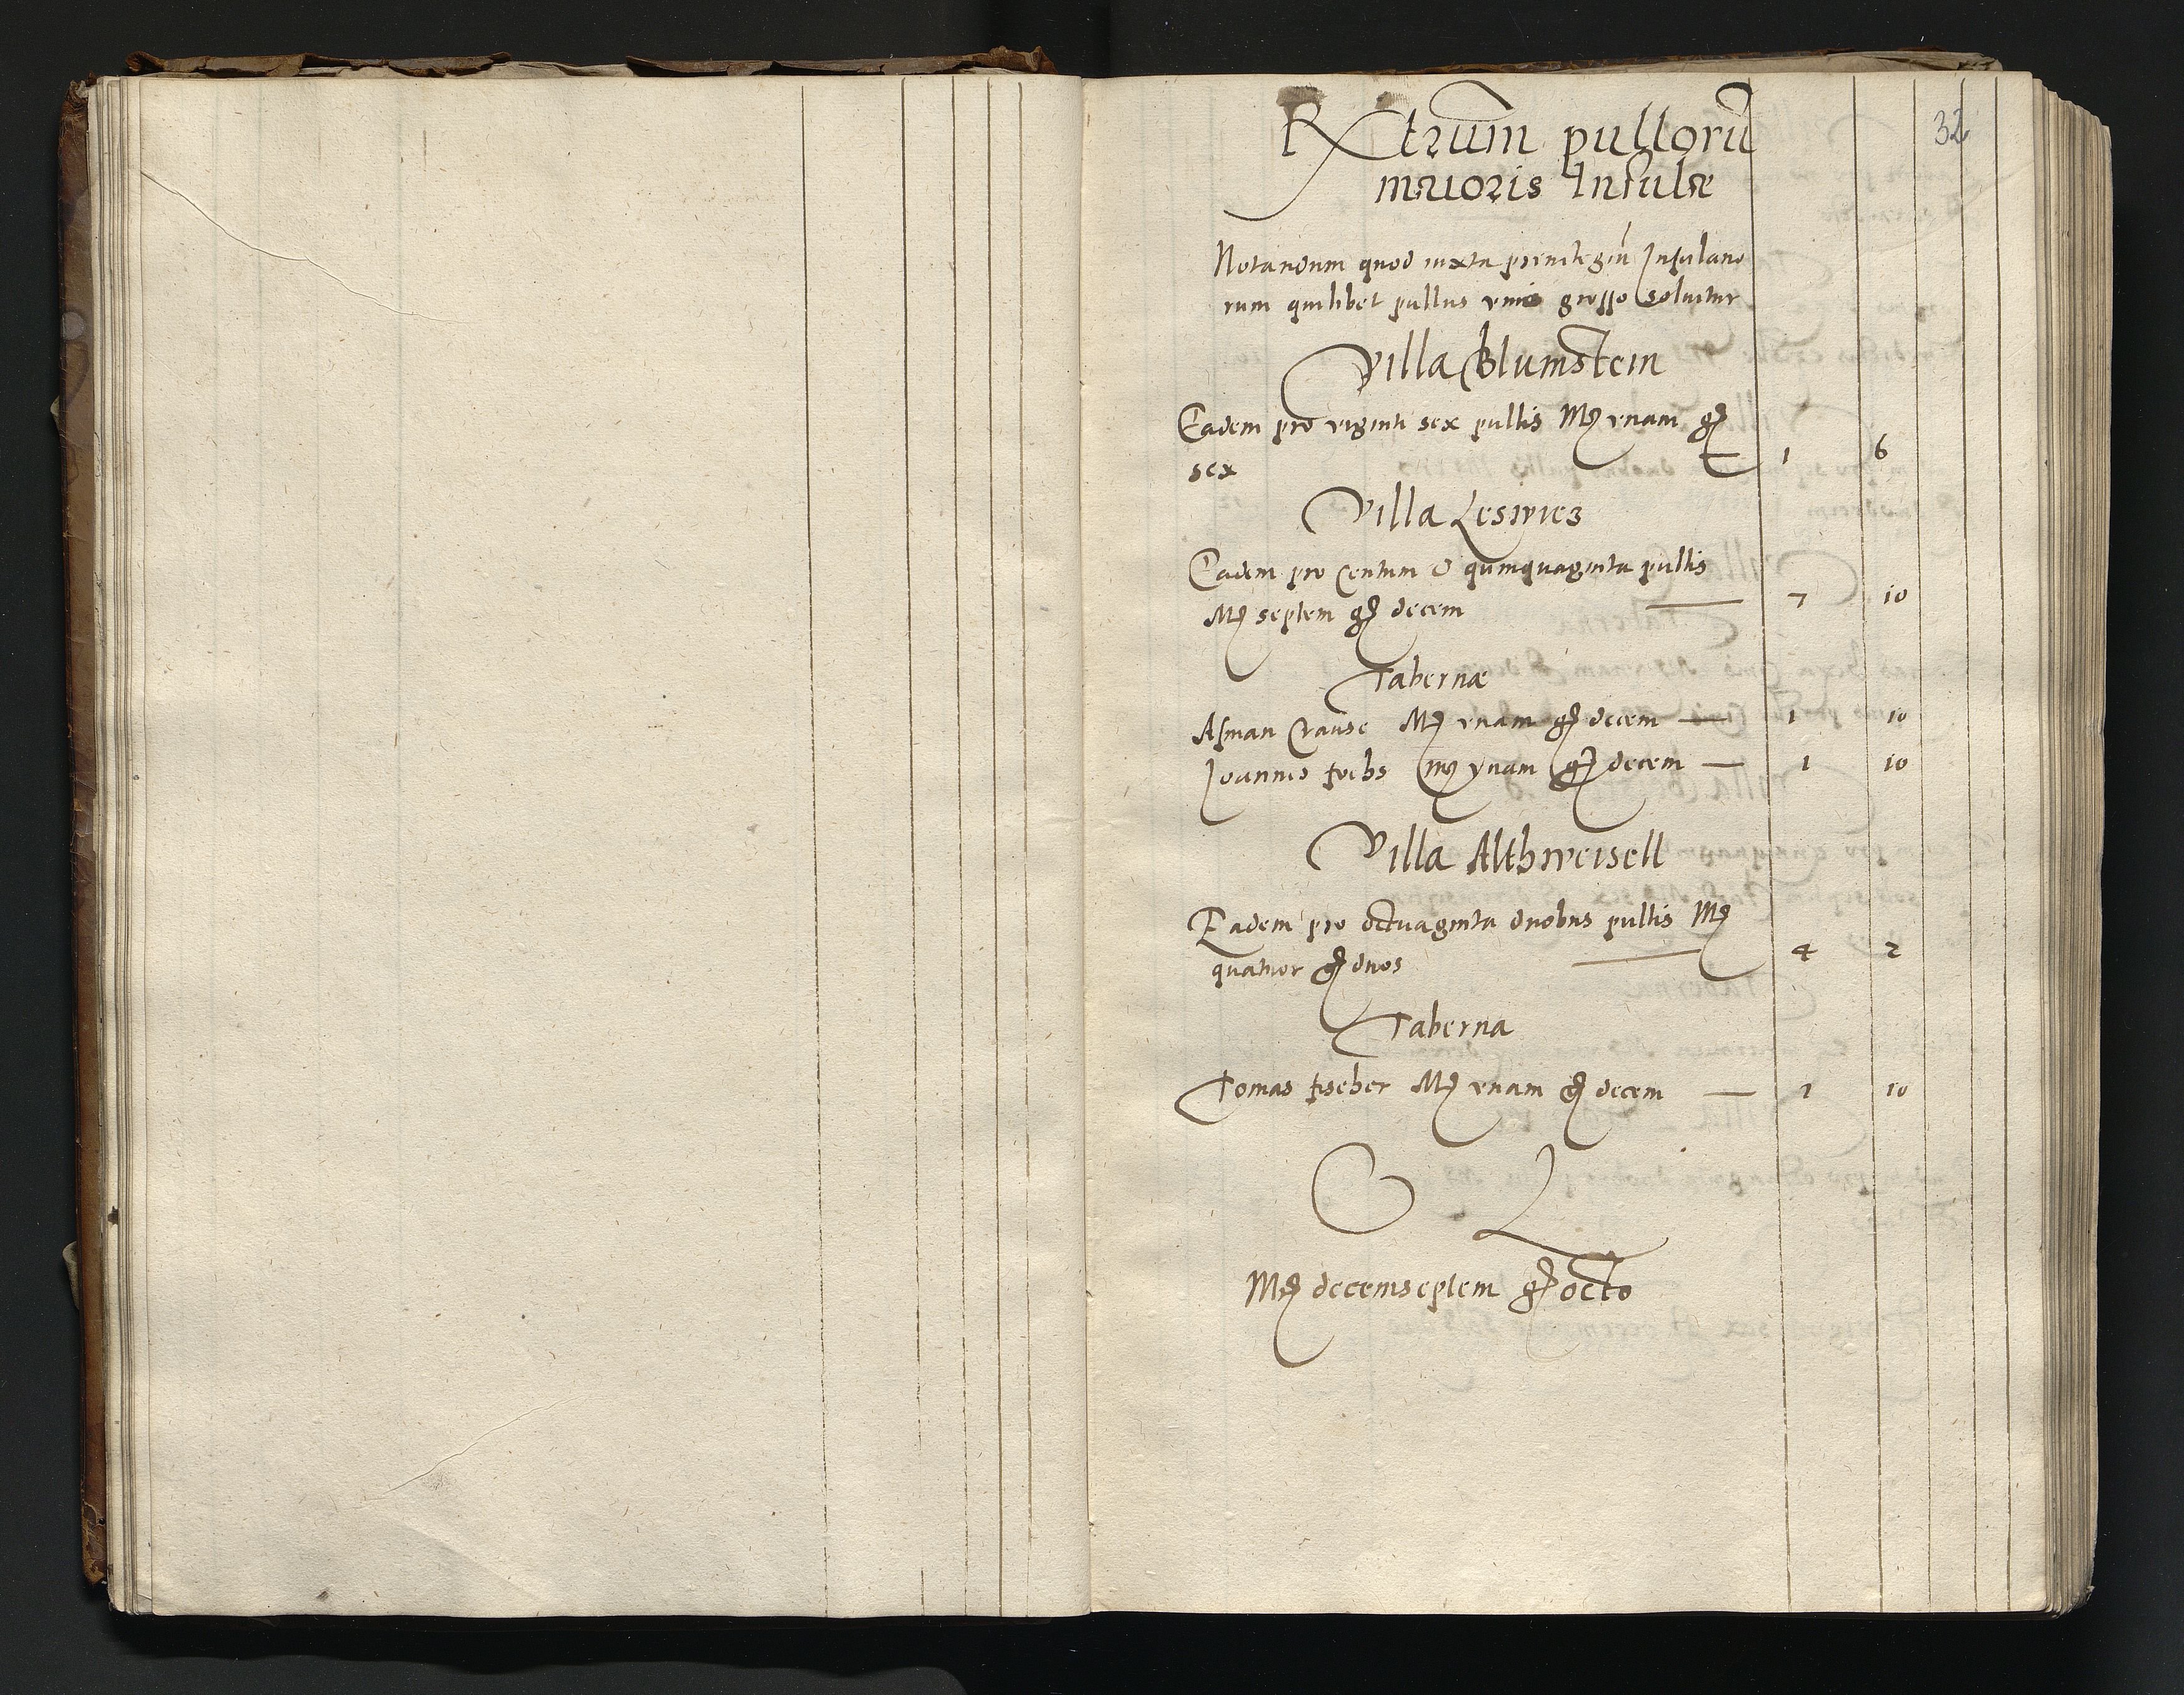 32
Extrum pullorũ
maioris Insulæ
Notandum quod iuxta preuilegiũ Insulano
rum quilibet pullus vno grosso soluitur
Villa Blumstein
Eadem pro viginti sex pullis Mꝫ vnam gꝫ
sex — 1 6
Villa Leswies
Eadem pro Centum & quinquaginta pullis
Mꝫ septem gꝫ decem — 7 10
Tabernæ
Asman Crause Mꝫ vnam gꝫ decem — 1 10
Joannes fochs Mꝫ vnam gꝫ decem — 1 10
Villa Althweisell
Eadem pro octuaginta duobus pullis Mꝫ
quatuor gꝫ duos — 4 2
Taberna
Tomas fischer Mꝫ vnam gꝫ decem — 1 10
Mꝫ decemseptem gꝫ octo